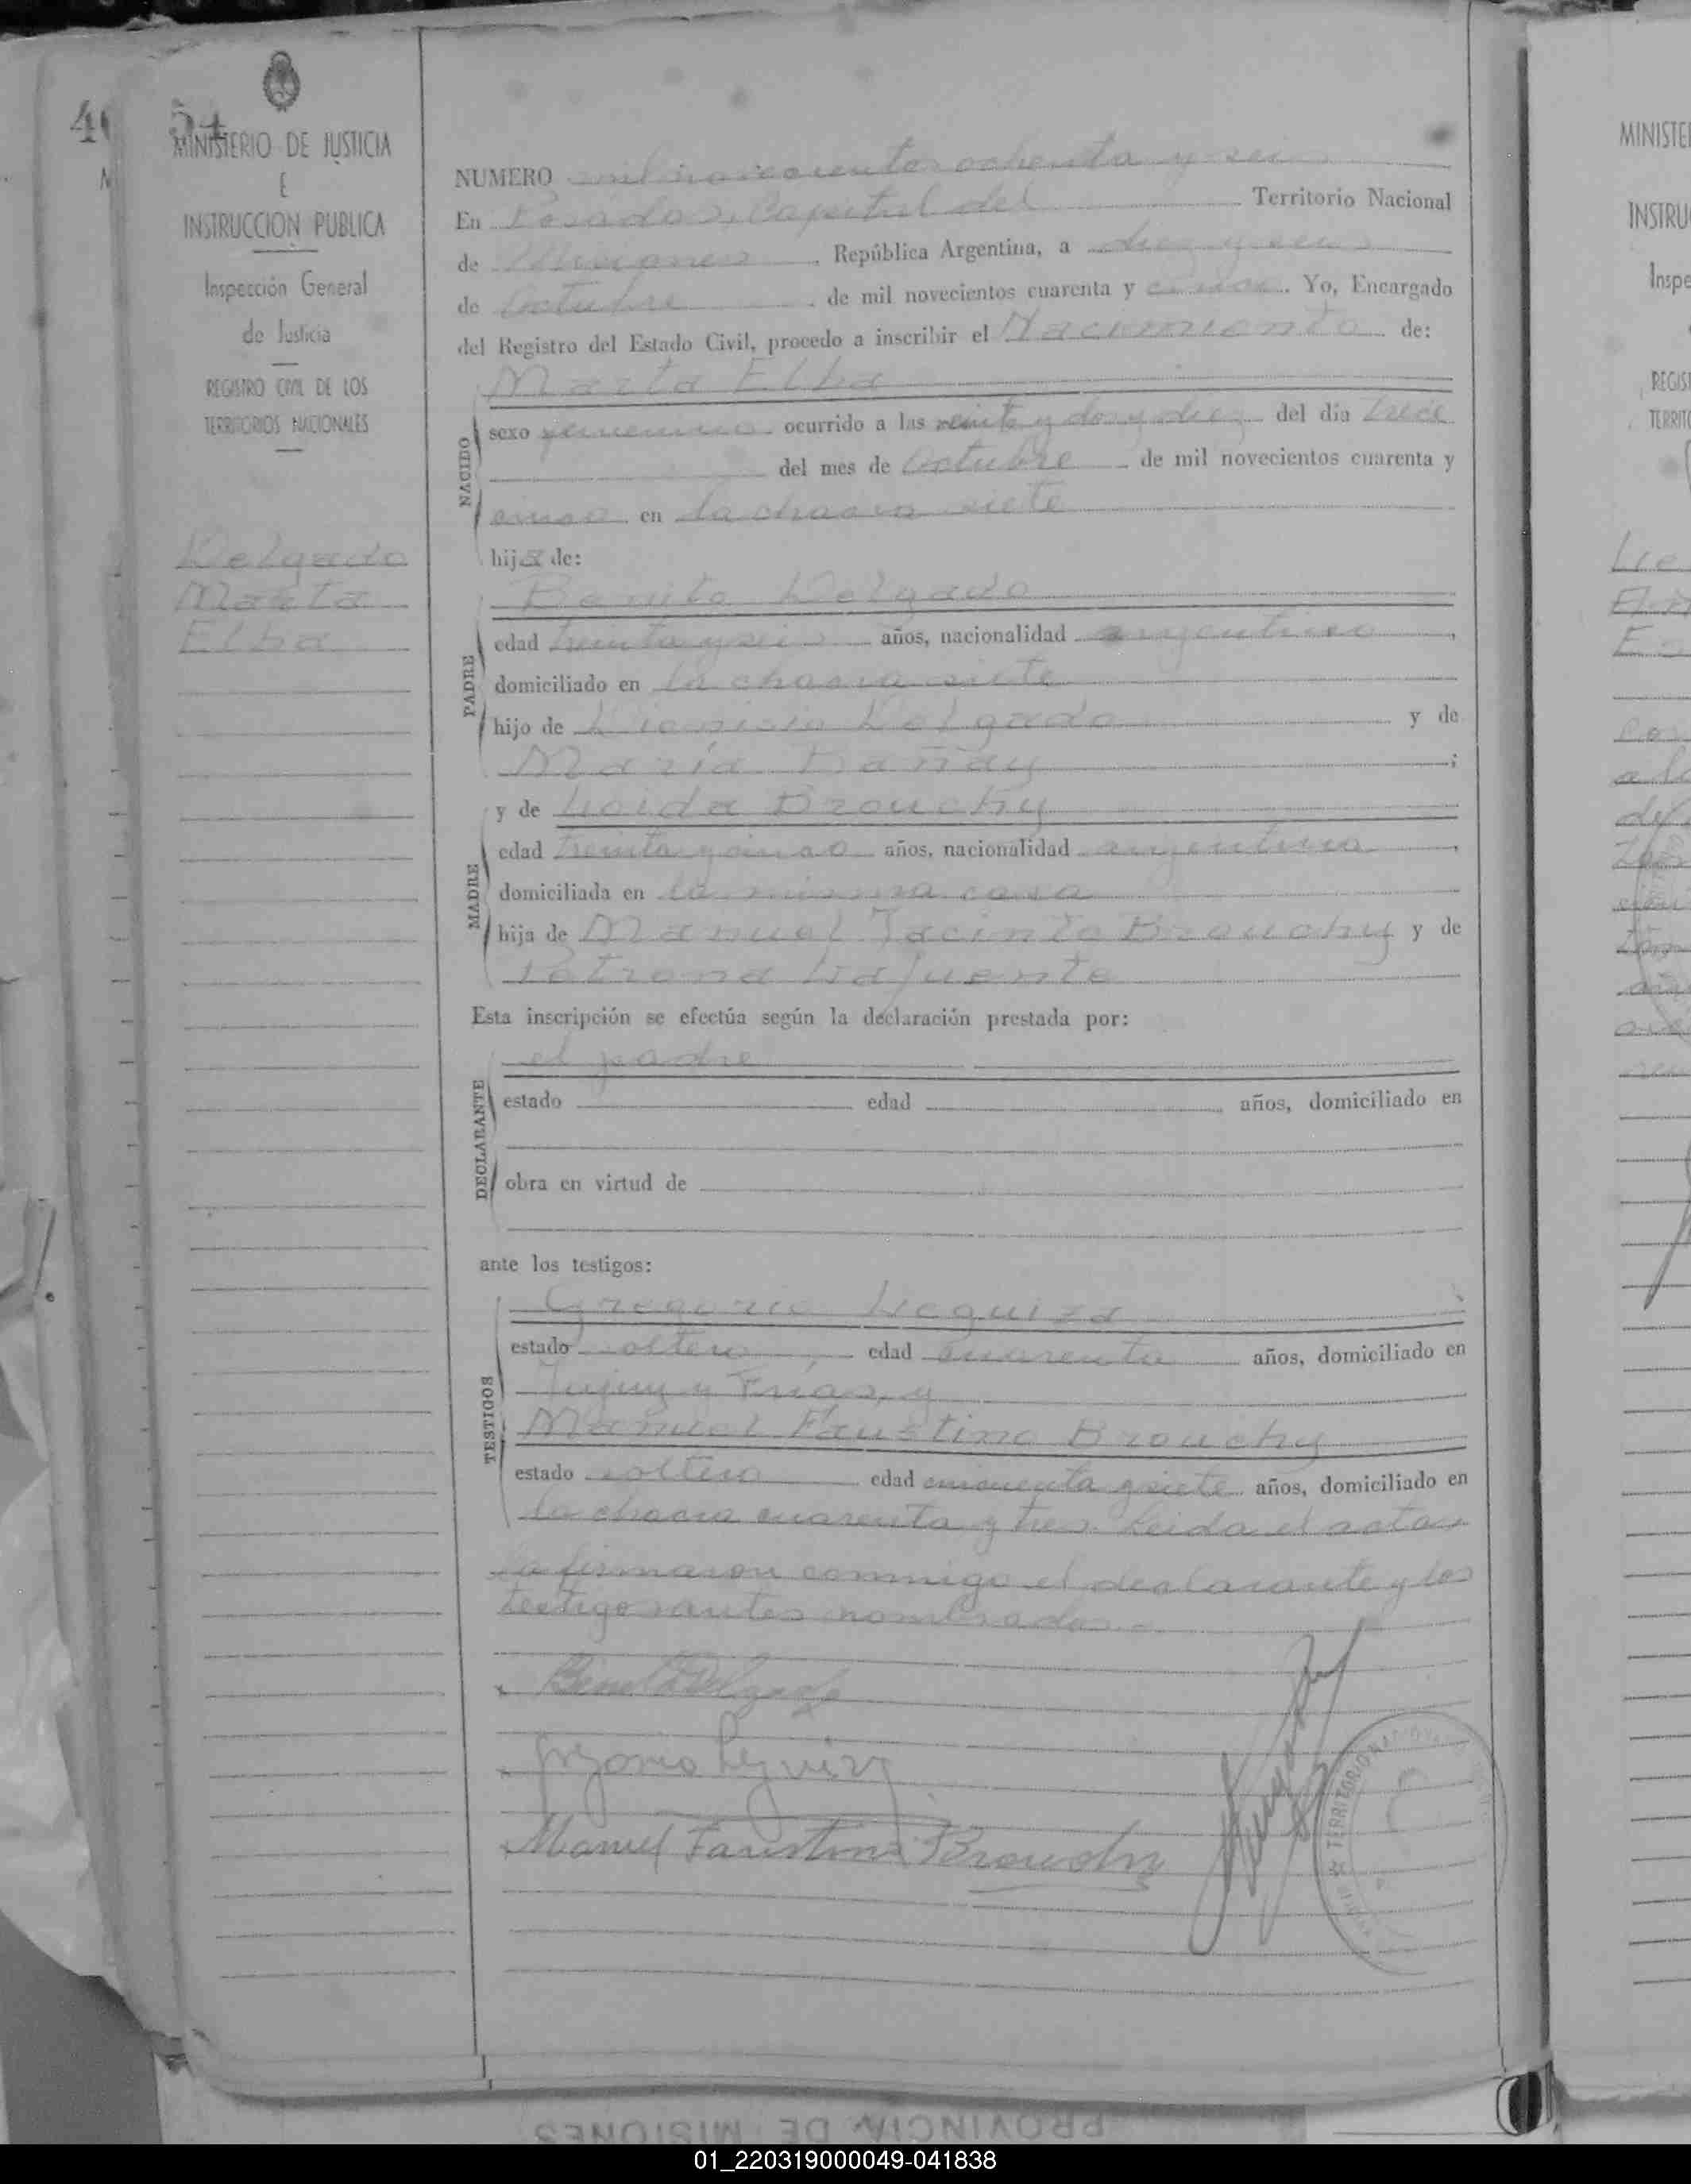 54
MINISTERIO DE JUSTICIA
E
INSTRUCCION PUBLICA
Inspección General
de Justicia
REGISTRO CIVIL DE LOS
TERRITORIOS NACIONALES
Delgado
Marta
Elba
NUMERO mil novecientos ochenta y seis
En Posadas, Capital del Territorio Nacional
de Misiones, República Argentina, a diez y seis
de Octubre de mil novecientos cuarenta y cinco. Yo, Encargado
del Registro del Estado Civil, procedo a inscribir el Nacimiento de:
Marta Elba
NACIDO
sexo femenino ocurrido a las veinte y dos y diez del día trece
del mes de Octubre de mil novecientos cuarenta y
cinco en la chacra siete
hija de:
Benito Delgado
PADRE
edad treinta y seis años, nacionalidad argentino,
domiciliado en la chacra siete
hijo de Dionisio Delgado y de
María;
y de Loida Brouchy
MADRE
edad treinta y cinco años, nacionalidad argentina,
domiciliada en la misma casa
hija de Manuel Jacinto Brouchy y de
Petrona Lafuente
Esta inscripción se efectúa según la declaración prestada por:
el padre
DECLARANTE
estado edad años, domiciliado en
obra en virtud de
ante los testigos:
Gregorio Leguiza
TESTIGOS
estado soltero, edad cuarenta años, domiciliado en
Jujuy y Frías, y
Manuel Faustino Brouchy
estado soltero edad cincuenta y siete años, domiciliado en
la chacra cuarenta y tres. Leida el acta,
la firmaron conmigo el declarante y los
testigos antes nombrados.-
Benito Delgado
Gregorio Leguiza
Manuel Faustino Brouchy
TERRITORIO NACIONAL
PROVINCIA DE MISIONES
01_220319000049-041838